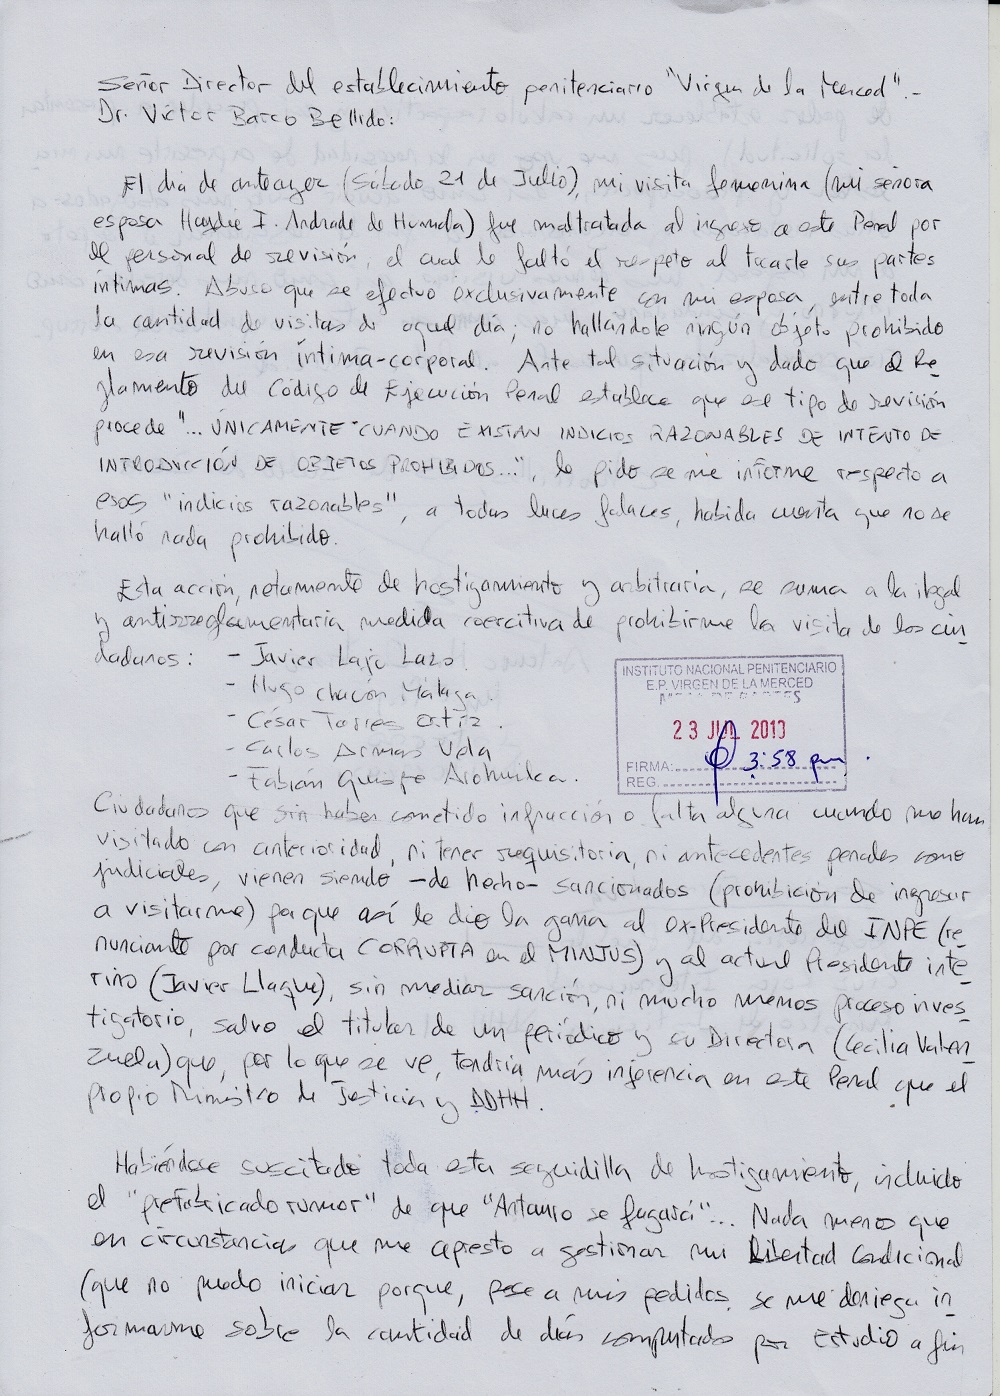 Señor Director del establecimiento penitenciario "Virgen de la Merced".-
Dr. Víctor Barco Bellido:
El día de anteayer (Sábado 21 de Julio), mi visita femenina (mi señora
esposa I. Andrade de Humala) fue maltratada al ingreso a este Penal por
el personal de revisión, el cual le faltó el respeto al tocarle sus partes
íntimas. Abuso que se efectuo exclusivamente con mi esposa, entre toda
la cantidad de visitas de aquel día; no hallándole ningún objeto prohibido
en esa revisión íntima-corporal. Ante tal situación y dado que el Re-
glamento del Código de Ejecución Penal establece que ese tipo de revisión
procede "... ÚNICAMENTE CUANDO EXISTAN INDICIOS RAZONABLES DE INTENTO DE
INTRODUCCIÓN DE OBJETOS PROHIBIDOS...", le pido se me informe respecto a
esos "indicios razonables", a todas luces falaces, habida cuenta que no se
halló nada prohibido.
Esta acción, netamente de hostigamiento y arbitraria, se suma a la ilegal
y antirreglamentaria medida coercitiva de prohibirme la visita de los ciu-
dadanos: - Javier Lajo Lazo.
- Hugo Chacón Málaga
- César Torres Ortiz.
- Carlos Armas Vela
- Fabián Quispe
INSTITUTO NACIONAL PENITENCIARIO
E.P. VIRGEN DE LA MERCED
MESA DE PARTES
23 JUL 2013
FIRMA: 3:58 pm
REG.
Ciudadanos que sin haber cometido infracción o falta alguna cuando me han
visitado con anterioridad, ni tener requisitoria, ni antecedentes penales como
judiciales, vienen siendo -de hecho- sancionados (prohibición de ingresar
a visitarme) porque así le dio la gana al ex-Presidente del INPE (re-
nunciante por conducta CORRUPTA en el MINJUS) y al actual Presidente inte-
rino (Javier Llaque), sin mediar sanción, ni mucho menos proceso inves-
tigatorio, salvo el titular de un periódico y su Directora (Cecilia Valen-
zuela) que, por lo que se ve, tendría más injerencia en este Penal que el
propio Ministro de Justicia y DDHH.
Habiéndose suscitado toda esta seguidilla de hostigamiento, incluido
el "prefabricado rumor" de que "Antauro se fugará"... Nada menos que
en circunstancias que me apresto a gestionar mi Libertad Condicional
(que no puedo iniciar porque, pese a mis pedidos, se me deniega in-
formarme sobre la cantidad de días computados por Estudio a fin